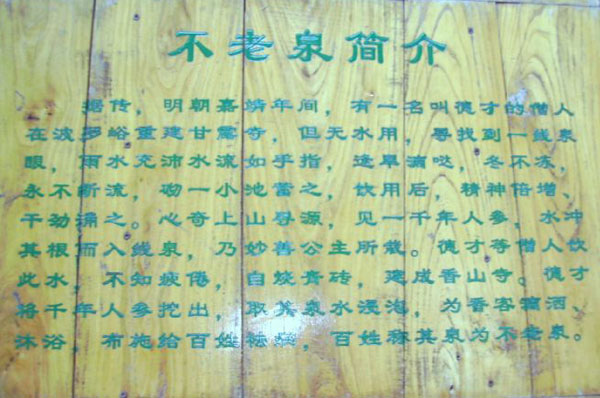 不老泉简介
据传，明朝嘉靖年间，有一名叫德才的僧人
在波罗峪重建甘露寺，但无水用，寻找到一线泉
眼，雨水充沛水流如手指，逢旱滴哒，冬不冻，
永不断流，砌一小池蓄之，饮用后，精神倍增、
干劲涌之。心奇上山寻源，见一千年人参，水冲
其根而入线泉，乃妙善公主所栽。德才等僧人饮
此水，不知疲倦，自烧青砖，建成香山寺。德才
将千年人参挖出，取其泉水浸泡，为香客滴洒、
沐浴，布施给百姓祛，百姓称其泉为不老泉。